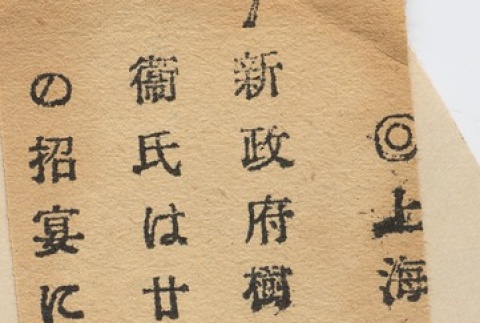 ◎上海
新政府樹
衞氏は廿
の招宴に